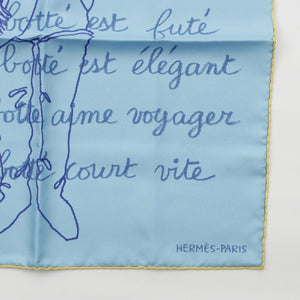 botté est futé
botté est élégant
botté aime voyager
botté court vite
HERMÈS-PARIS